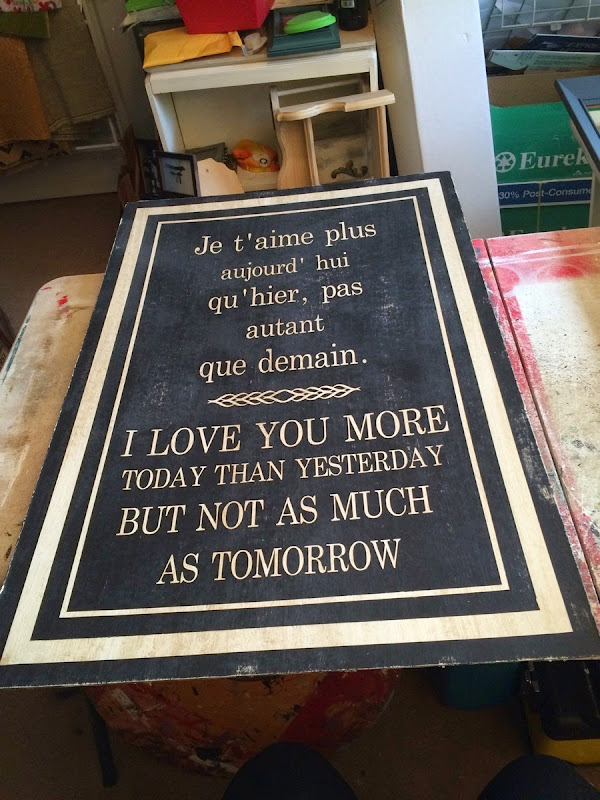 Je t'aime plus
aujourd' hui
qu'hier, pas
autant
que demain.
I LOVE YOU MORE
TODAY THAN YESTERDAY
BUT NOT AS MUCH
AS TOMORROW
Eurek
30% Post-Consume